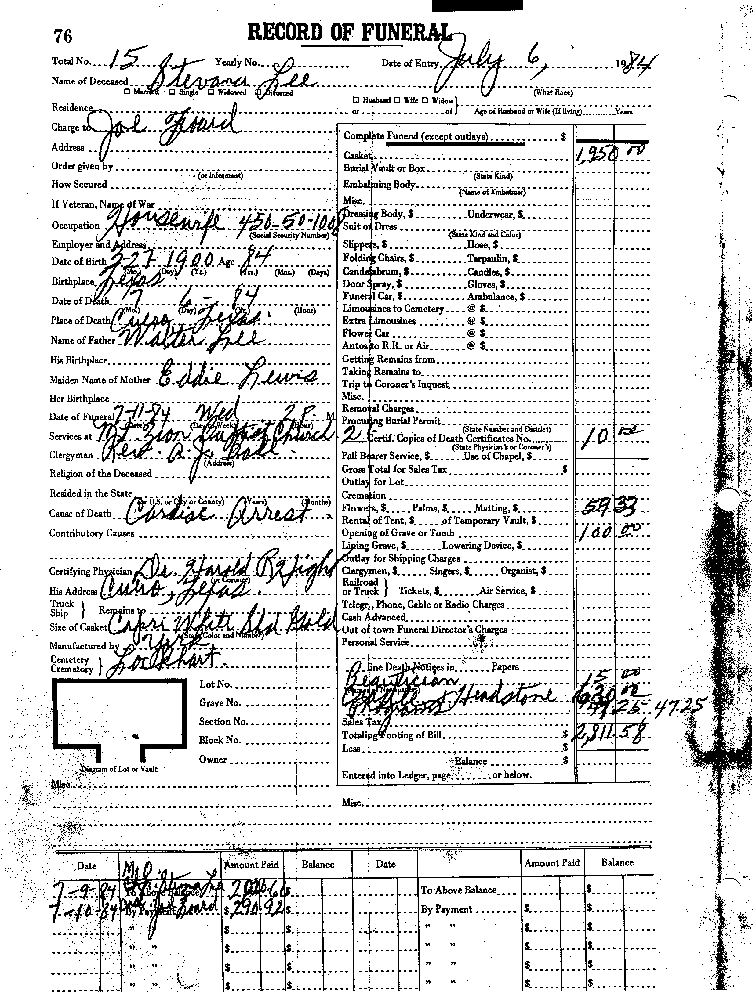 76
RECORD OF FUNERAL
Total No. 15 Yearly No. Date of Entry July 6, 1984
Name of Deceased Stevana Lee
☐ Married ☐ Single ☐ Widowed ☐ Divorced (What Race)
Residence ☐ Husband ☐ Wife ☐ Widow
or of Age of Husband or Wife (If living) Years
Charge to Joe
Address
Order given by
(or Informant)
How Secured
If Veteran, Name of War
Occupation Housewife 450-50-100
(Social Security Number)
Employer and Address
Date of Birth 3-27 1900 Age 84
(Mo.) (Day) (Yr.) (Yrs.) (Mos.) (Days)
Birthplace Texas
Date of Death 7 6 - 84
(Mo.) (Day) (Yr.) (Hour)
Place of Death Cuero, Texas
Name of Father Walter Lee
His Birthplace
Maiden Name of Mother Eddie Lewis
Her Birthplace
Date of Funeral 7-11-84 Wed 2 P. M.
Services at Mt. Zion Baptist Church
Clergyman Rev. A. J.
(Address)
Religion of the Deceased
Resided in the State
(or U.S. or City or County) (Years) (Months)
Cause of Death Cardiac Arrest
Contributory Causes
Certifying Physician Dr. Harold
(or Coroner)
His Address Cuero, Texas
Truck
Ship } Remains to
Size of Casket Capri White Gold
(State Color and Number)
Manufactured by York
Cemetery
Crematory } Lockhart
Lot No.
Grave No.
Section No.
Block No.
Owner
Diagram of Lot or Vault
Misc.
Complete Funeral (except outlays) $
Casket 1,950 00
Burial Vault or Box
(State Kind)
Embalming Body
(Name of Embalmer)
Misc.
Dressing Body, $ Underwear, $
Suit or Dress
(State Kind and Color)
Slippers, $ Hose, $
Folding Chairs, $ Tarpaulin, $
Candelabrum, $ Candles, $
Door Spray, $ Gloves, $
Funeral Car, $ Ambulance, $
Limousines to Cemetery @ $
Extra Limousines @ $
Flower Car @ $
Autos to R.R. or Air @ $
Getting Remains from
Taking Remains to
Trip to Coroner's Inquest
Misc.
Removal Charges
Procuring Burial Permit
(State Number and District)
2 Certif. Copies of Death Certificates No. 10 00
(State Physician's or Coroner's)
Pall Bearer Service, $ Use of Chapel, $
Gross Total for Sales Tax $
Outlay for Lot
Cremation
Flowers, $ Palms, $ Matting, $ 59 33
Rental of Tent, $ of Temporary Vault, $
Opening of Grave or Tomb 100 00
Lining Grave, $ Lowering Device, $
Outlay for Shipping Charges
Clergymen, $ Singers, $ Organist, $
Railroad
or Truck } Tickets, $ Air Service, $
Telegr., Phone, Cable or Radio Charges
Cash Advanced
Out of town Funeral Director's Charges
Personal Service
Line Death Notices in Papers
Beautician 15 00
Headstone 630 00
Programs 47.25
Sales Tax
Totaling Footing of Bill $ 2,811.58
Less $
Balance $
Entered into Ledger, page or below.
Misc.
Date Amount Paid Balance Date Amount Paid Balance
7-9-84 To Above Balance $
7-10-84 By Payment 290.92 $ By Payment $ $
" " $ $ " " $ $
" " $ $ " " $ $
" " $ $ " " $ $
" " $ $ " " $ $